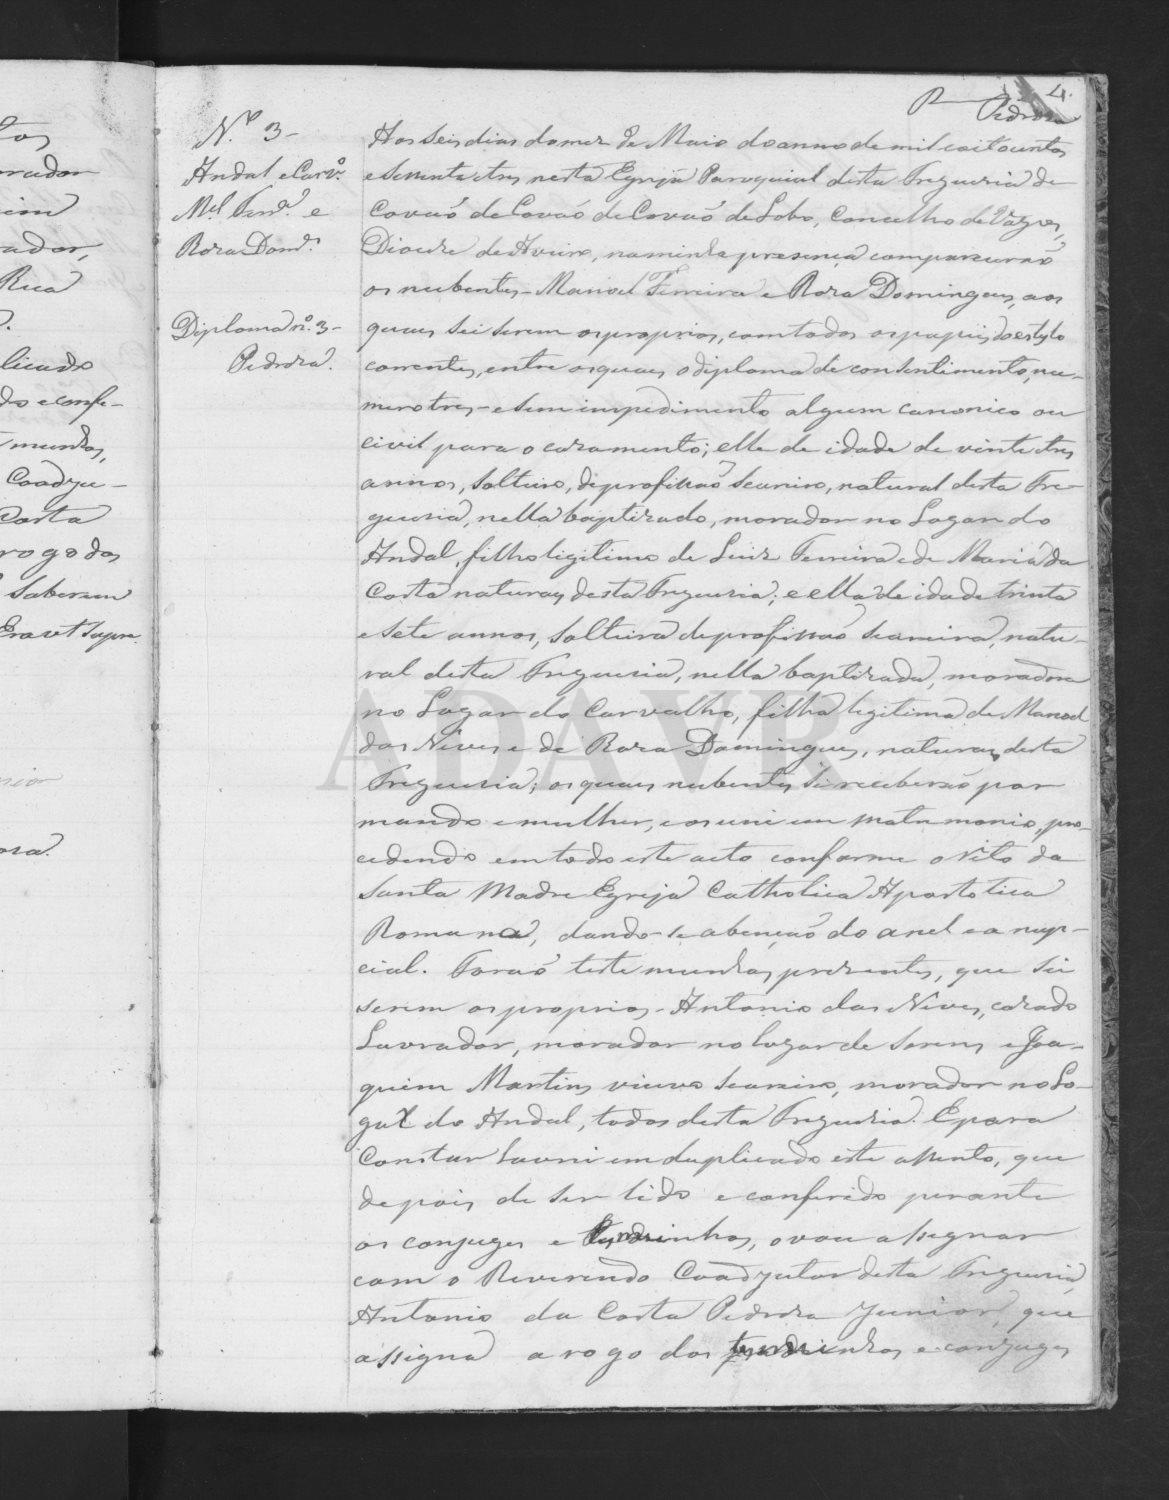 4.
P Pedroza
N.º 3-
Andal e Carv.º
M.el Ferr.ª e
Roza Dom.s
Diploma n.º 3-
Pedroza.
Aos seis dias do mez de Maio do anno de mil eoitocentos
e setenta e tres nesta Egreja Paroquial desta Freguesia de
Covaõ de Covaõ de Covaõ de Lobo, Concelho de Vagos,
Diocese de Aveiro, na minha presença compareceraõ
os nubentes - Manoel Ferreira e Roza Domingues, aos
quaes sei serem os proprios, com todos os papeis do estylo
correntes, entre os quaes o diploma de consentimento, nu-
mero tres - e sem impedimento algum canonico ou
civil para o cazamento; elle de idade de vinte e tres
annos, solteiro, de profissaõ seareiro, natural desta Fre-
guesia, nella baptizado, morador no Logar do
Andal, filho legitimo de Luiz Ferreira e de Maria da
Costa naturaes desta Freguesia; e ella de idade trinta
e sete annos, solteira de profissaõ seareira, natu-
ral desta Freguesia, nella baptizada, moradora
no Logar do Carvalho, filha legitima de Manoel
das Neves e de Roza Domingues, naturaes desta
Freguesia; os quaes nubentes se receberaõ por
marido e mulher, e os uni em matrimonio, pro-
cedendo em todo este acto conforme o rito da
Santa Madre Egreja Catholica Apostolica
Romana, dando-se a bençaõ do anel e a nup-
cial. Foraõ testemunhas prezentes, que sei
serem os proprios - Antonio das Neves, cazado
Lavrador, morador no lugar de e Joa-
quim Martins viuvo seareiro, morador no Lo-
gar do Andal, todos desta Freguesia. E para
Constar lavrei em duplicado este assento, que
depois de ser lido e conferido perante
os conjuges e , o vou assignar
com o Reverendo Coadjutor desta Freguesia,
Antonio da Costa Pedroza Junior, que
assigna a rogo das e conjuges
tos
rador
ador,
Rua
licado
do e confe-
munhas,
Coadju-
Costa
rogo das
saberem
Era ut supra.
ADAVR